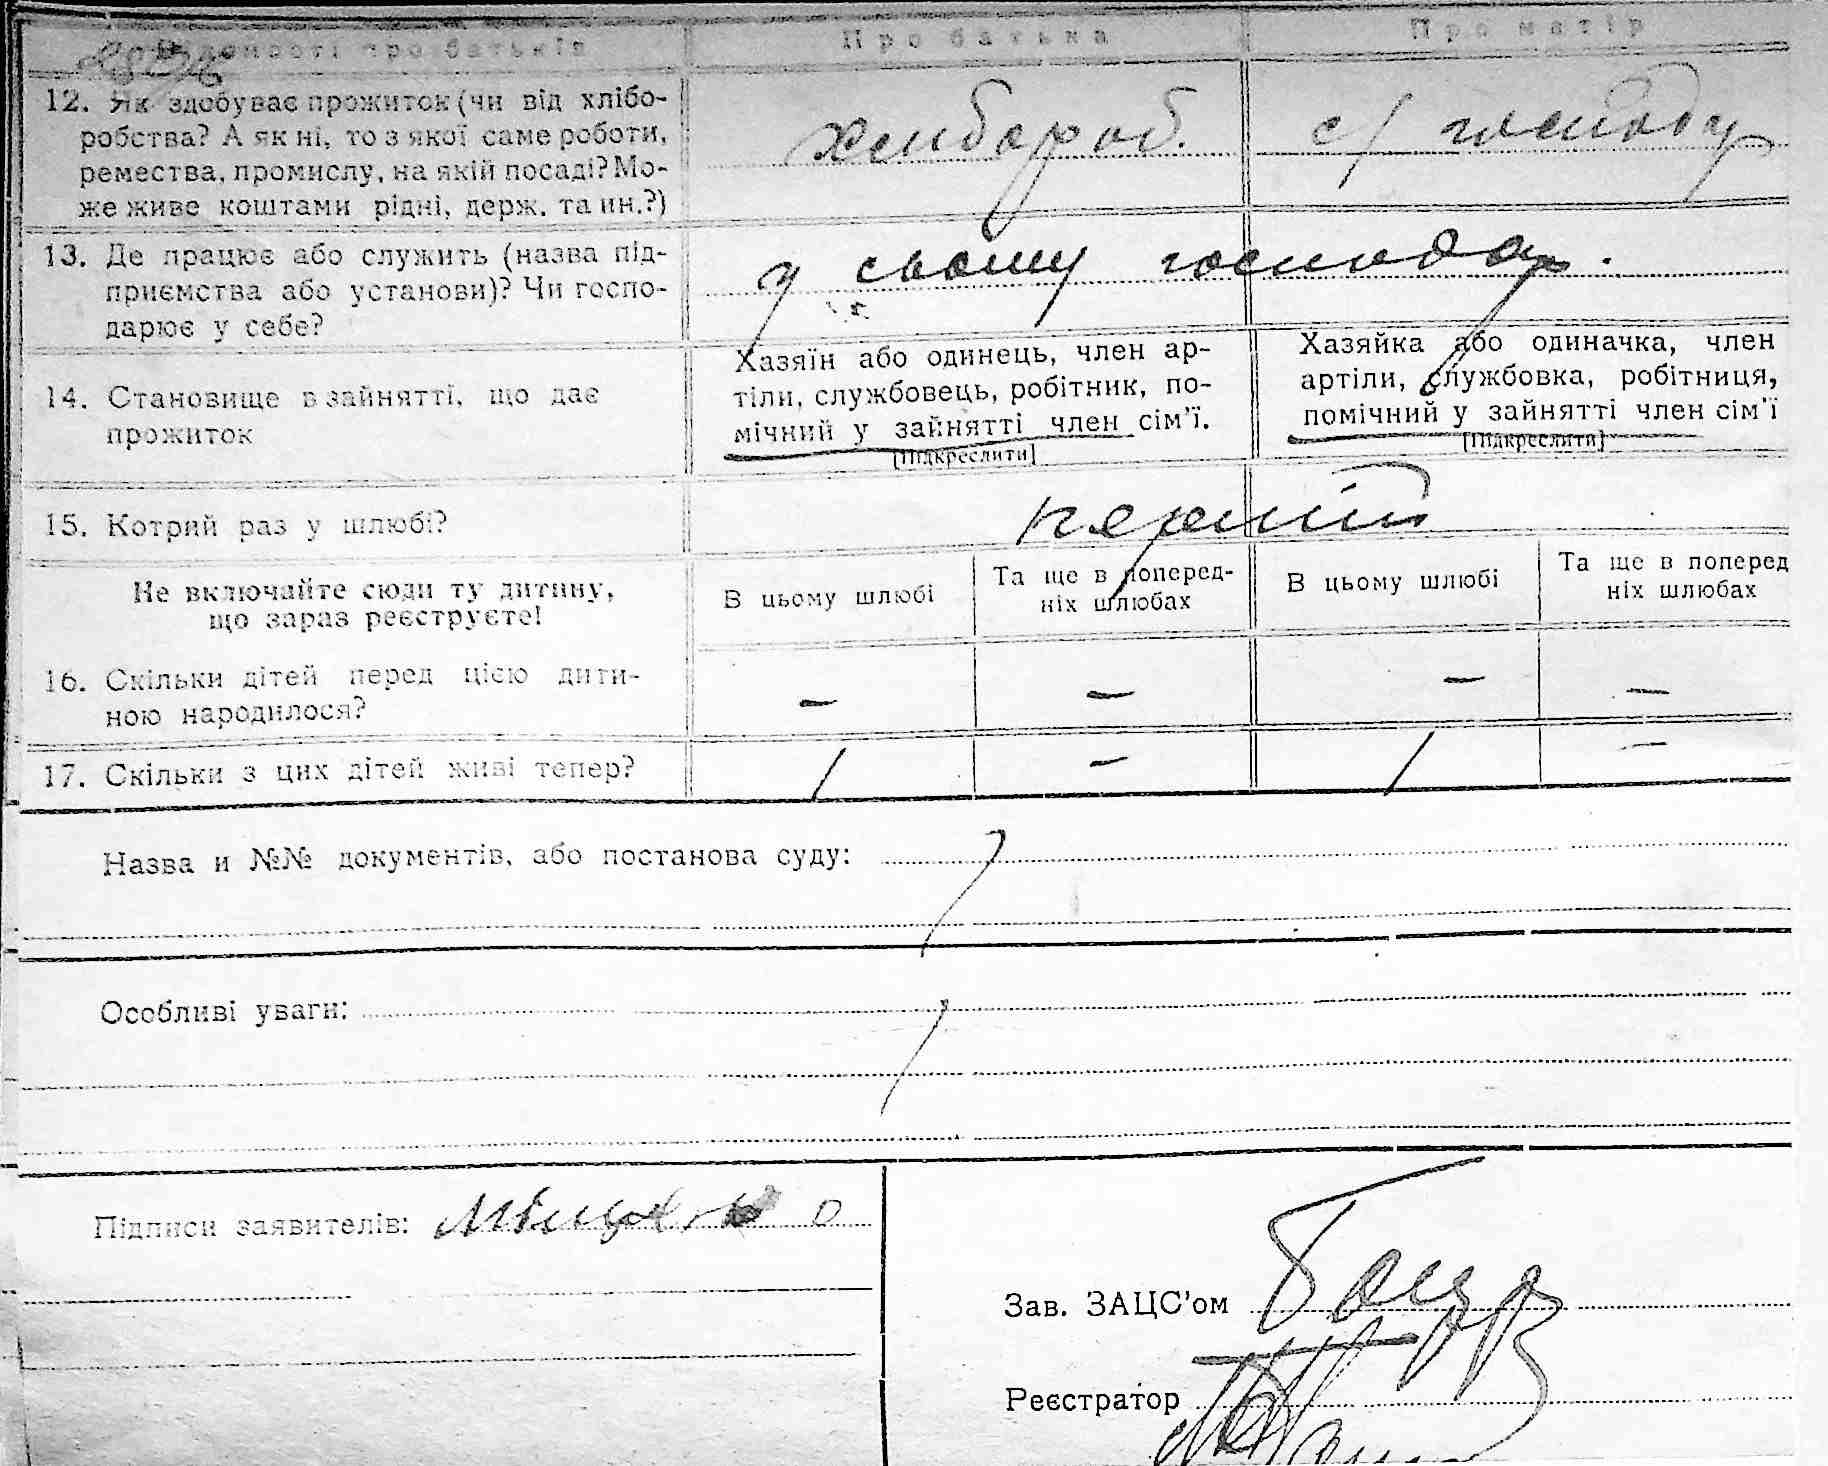 Відомості про батьків Про батька Про матір
12. Як здобуває прожиток (чи від хлібо-
робства? А як ні, то з якої саме роботи,
ремества, промислу, на якій посаді? Мо-
же живе коштами рідні, держ. та ин.?)
хлибороб.
с/господар
13. Де працює або служить (назва під-
приємства або установи)? Чи госпо-
дарює у себе?
у сьому господар.
14. Становище в зайнятті, що дає
прожиток
Хазяїн або одинець, член ар-
тіли, службовець, робітник, по-
мічний у зайнятті член сім'ї.
[Підкреслити]
Хазяйка або одиначка, член
артіли, службовка, робітниця,
помічний у зайнятті член сім'ї
[Підкреслити]
15. Котрий раз у шлюбі?
перший
Не включайте сюди ту дитину,
що зараз реєструєте!
В цьому шлюбі
Та ще в поперед-
ніх шлюбах
В цьому шлюбі
Та ще в поперед
ніх шлюбах
16. Скільки дітей перед цією дити-
ною народилося?
– – – –
17. Скільки з цих дітей живі тепер?
/ – / –
Назва и №№ документів, або постанова суду:
Особливі уваги:
Підписи заявителів:
Зав. ЗАЦС'ом
Реєстратор